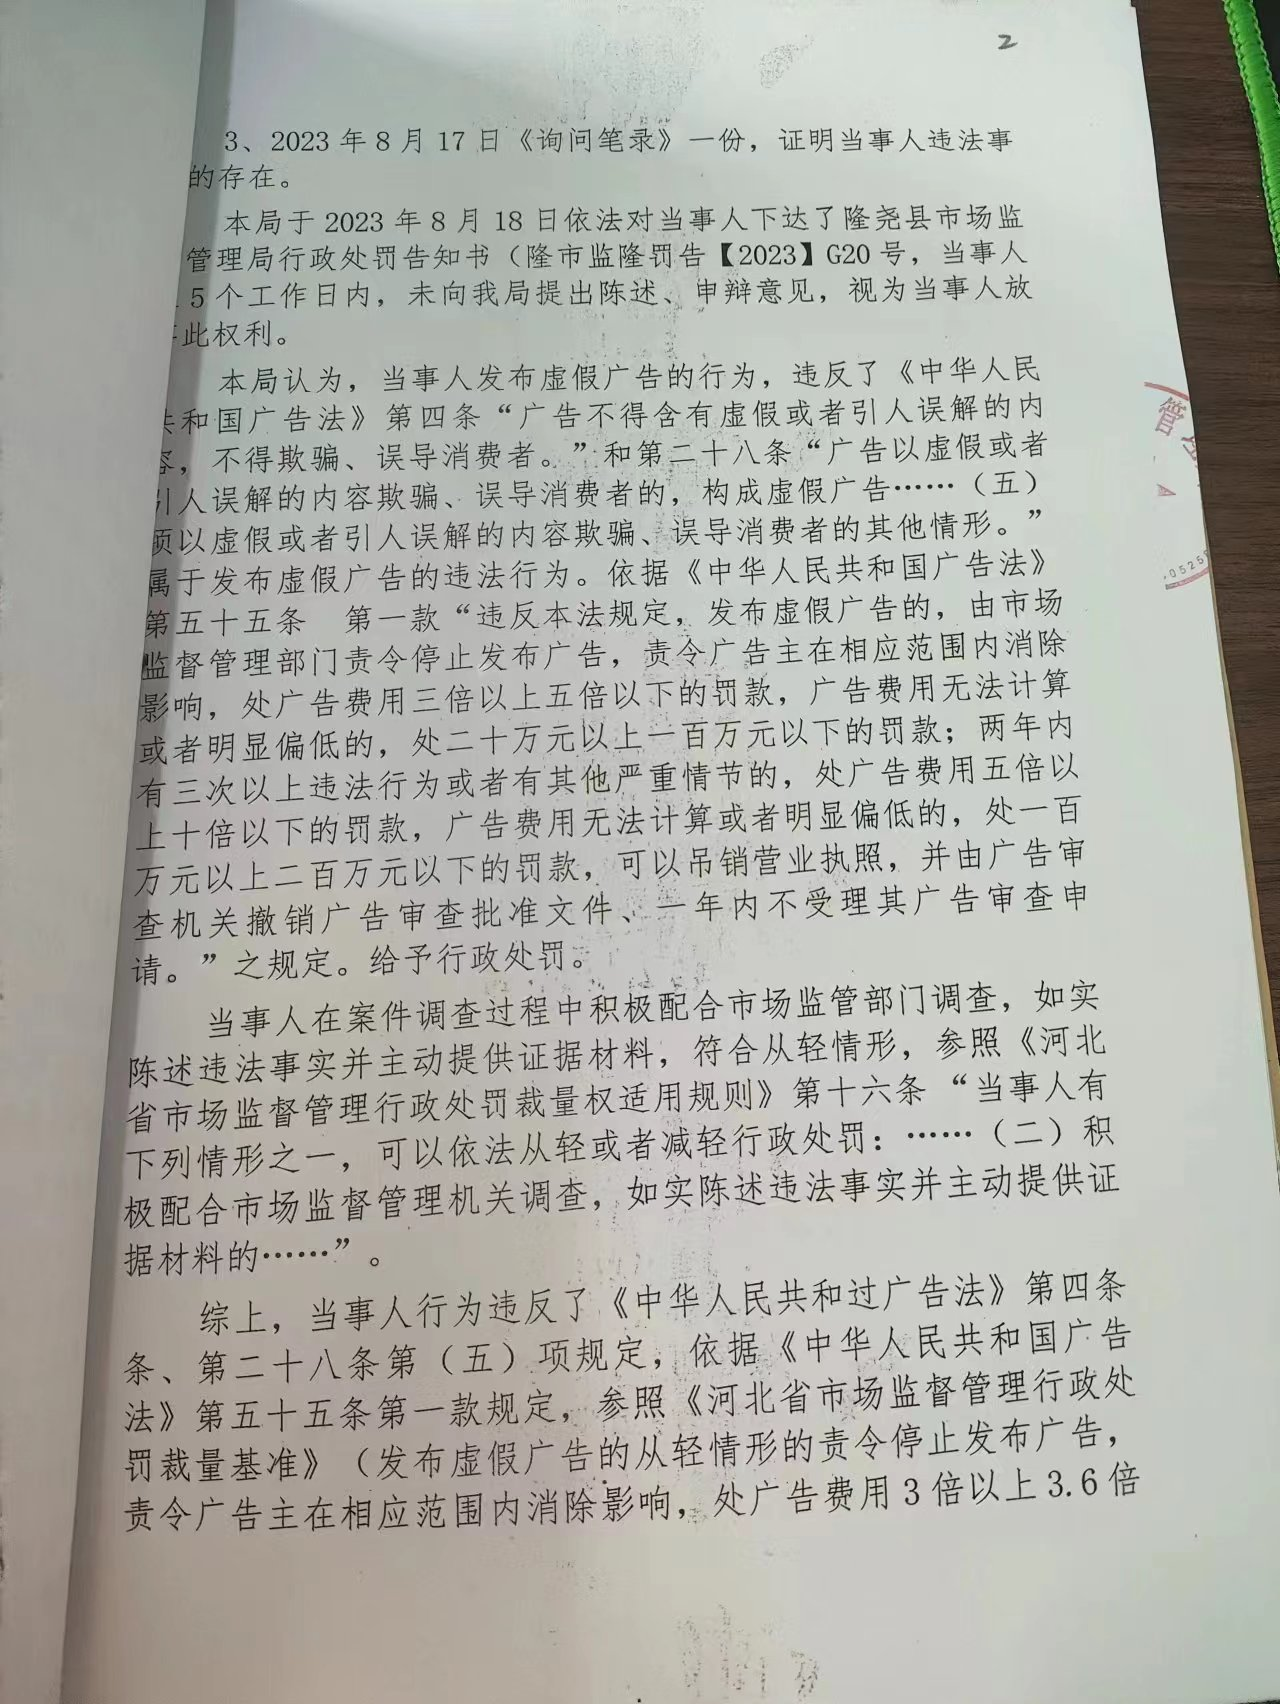 2
3、2023年8月17日《询问笔录》一份，证明当事人违法事
的存在。
本局于2023年8月18日依法对当事人下达了隆尧县市场监
管理局行政处罚告知书（隆市监隆罚告【2023】G20号，当事人
5个工作日内，未向我局提出陈述、申辩意见，视为当事人放
此权利。
本局认为，当事人发布虚假广告的行为，违反了《中华人民
共和国广告法》第四条“广告不得含有虚假或者引人误解的内
容，不得欺骗、误导消费者。”和第二十八条“广告以虚假或者
引人误解的内容欺骗、误导消费者的，构成虚假广告……（五）
项以虚假或者引人误解的内容欺骗、误导消费者的其他情形。”
属于发布虚假广告的违法行为。依据《中华人民共和国广告法》
第五十五条 第一款“违反本法规定，发布虚假广告的，由市场
监督管理部门责令停止发布广告，责令广告主在相应范围内消除
影响，处广告费用三倍以上五倍以下的罚款，广告费用无法计算
或者明显偏低的，处二十万元以上一百万元以下的罚款；两年内
有三次以上违法行为或者有其他严重情节的，处广告费用五倍以
上十倍以下的罚款，广告费用无法计算或者明显偏低的，处一百
万元以上二百万元以下的罚款，可以吊销营业执照，并由广告审
查机关撤销广告审查批准文件、一年内不受理其广告审查申
请。”之规定。给予行政处罚。
当事人在案件调查过程中积极配合市场监管部门调查，如实
陈述违法事实并主动提供证据材料，符合从轻情形，参照《河北
省市场监督管理行政处罚裁量权适用规则》第十六条“当事人有
下列情形之一，可以依法从轻或者减轻行政处罚：……（二）积
极配合市场监督管理机关调查，如实陈述违法事实并主动提供证
据材料的……”。
综上，当事人行为违反了《中华人民共和过广告法》第四条
条、第二十八条第（五）项规定，依据《中华人民共和国广告
法》第五十五条第一款规定，参照《河北省市场监督管理行政处
罚裁量基准》（发布虚假广告的从轻情形的责令停止发布广告，
责令广告主在相应范围内消除影响，处广告费用3倍以上3.6倍
管
0525